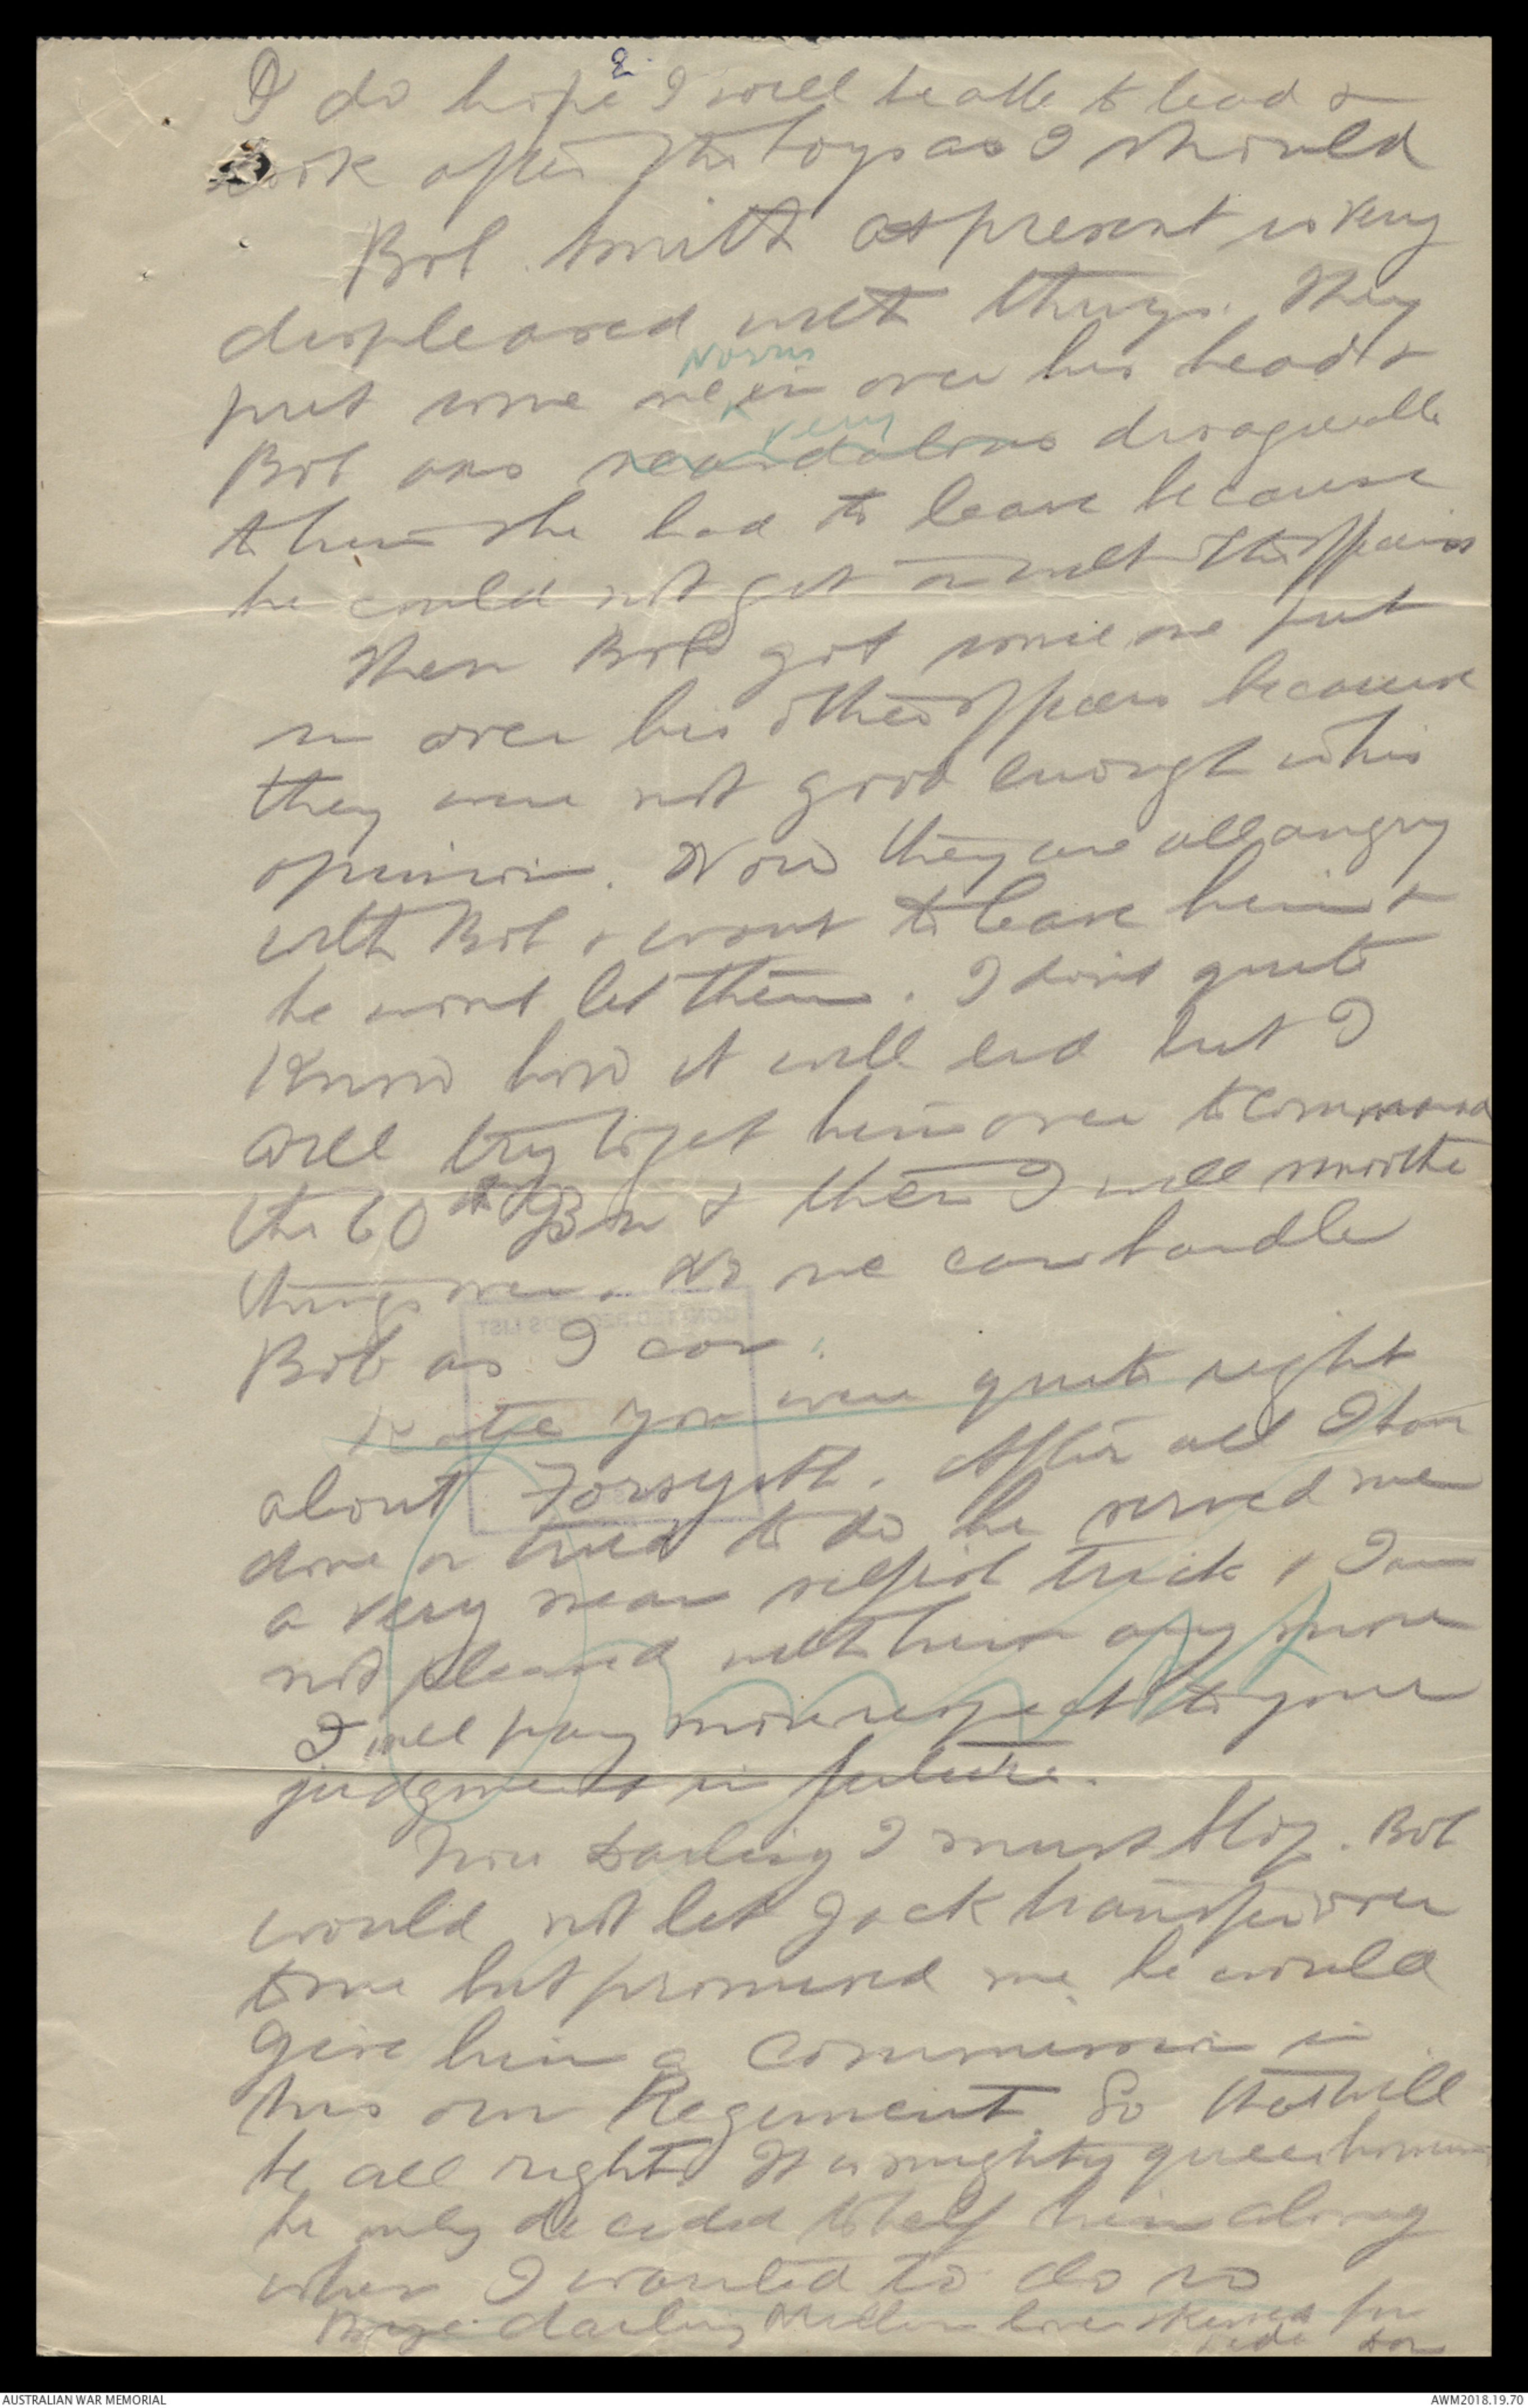 2
I do hope I will be able to lead &
look after the boys as I should
Bob Smith at present is very
displeased with things. They
Norris
put some one in over his head &
very
Bob was scandalous disagreeable
to him & he had to leave because
he could not get on with the officers
Then Bob got some one put
in over his other officers because
they were not good enough in his
opinion. Now they are all angry
with Bob & want to leave him &
he wont let them. I don't quite
know how it will end but I
will try to get him over to command
the 60th Bn & then I will smoothe
things over. No one can handle
Bob as I can.
Katie you were quite right
about Forsyth. After all I have
done or tried to do he served me
a very mean selfish trick & I am
not pleased with him any more
I will pay more respect to your
judgment in future.
Now Darling I must stop. Bob
would not let Jack transfer over
to me but promised me he would
give him a commission in
his own Regiment. So that will
be all right. It is mighty queer how
he only decided to help him along
when I wanted to do so
Bye darling Million love & kisses for
Don
DONATED RECORDS LIST
AUSTRALIAN WAR MEMORIAL
AWM2018.19.70